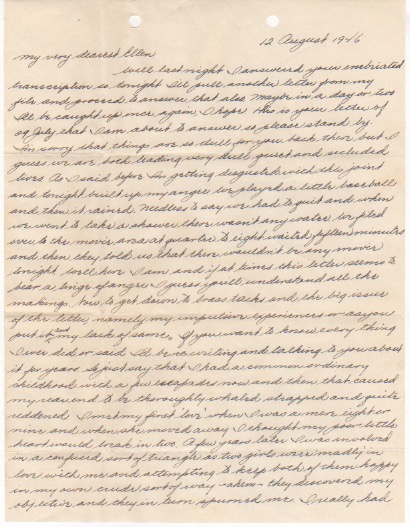 12 August 1946
my very dearest Ellen
Well last night I answered your inebriated
transcription so tonight I'll pull another letter from my
file and proceed to answer that also. Maybe in a day or two
I'll be caught up once again. I hope this is your letter of
29 July that I am about to answer so please stand by.
I'm sorry that things are so dull for you back there but I
guess we are both leading very dull quiet and secluded
lives. As I said before I'm getting disgusted with this joint
and tonight built up my anger. We played a little baseball
and then it rained. Needless to say we had to quit and when
we went to take a shower there wasn't any water. We filed
over to the movie area at quarter to eight waited fifteen minutes
and then they told us that there wouldn't be any movie
tonight. Well here I am and if at times this letter seems to
bear a tinge of anger I guess you'll understand all the
makings. Now to get down to brass tacks and the big issue
of the letter namely my impulsive experiences or as you
put it and my lack of same. If you want to know every thing
I ever did or said I'd be writing and talking to you about
it for years so just say that I had a common ordinary
childhood with a few escapades now and then that caused
my rear end to be thoroughly whaled strapped and quite
reddened. I met my first 'love' when I was a mere eight or
nine and when she moved away I thought my poor little
heart would break in two. A few years later I was involved
in a confused sort of triangle as two girls were madly in
love with me and attempting to keep both of them happy
in my own crude sort of way - ahem - they discovered my
objective and they in turn spurned me. I really had